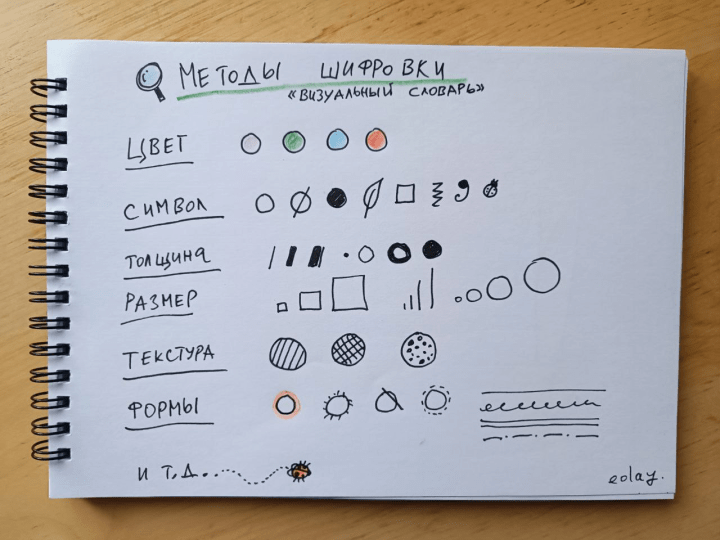 МЕТОДЫ ШИФРОВКИ
«ВИЗУАЛЬНЫЙ СЛОВАРЬ»
ЦВЕТ
СИМВОЛ
ТОЛЩИНА
РАЗМЕР
ТЕКСТУРА
ФОРМЫ
И Т.Д...
eolay.